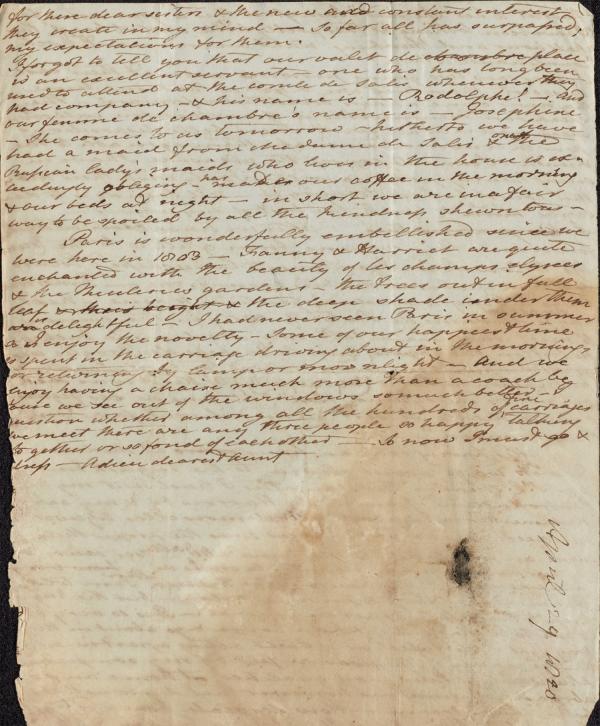 for these dear sisters & the new and constant interest
they create in my mind – So far all has surpassed
my expectations for them.
I forgot to tell you that our valet de chambre place
is an excellent servant – one who has long been
used to attend at the comte de Salis whenever they
had company – & his name is – Rodolphe! – and
our femme de chambre's name is – Josephine
– She comes to us tomorrow – hitherto we have
had a maid from Madame de Salis & one of the
Russian lady's maids who lives in the house is ex-
ceedingly obliging – has made us our coffee in the morning
& our beds at night – in short we are in a fair
way to be spoiled by all the kindness shewn to us –
Paris is wonderfully embellished since we
were here in 1803 – Fanny & Harriet are quite
enchanted with the beauty of les champs elysees
& the Thuileries gardens – the trees out in full
leaf & their height & the deep shade under them
is delightful – I had never seen Paris in summer
so I enjoy the novelty – Some of our happiest time
is spent in the carriage driving about in the mornings
or returning by lamp or moonlight – and we
enjoy having a chaise much more than a coach be
cause we see out of the windows so much better – I
question whether among all the hundreds of carriages
we meet there are any three people so happy talking
together or so fond of each other – So now I must go &
dress – Adieu dearest aunt
April 29 1820